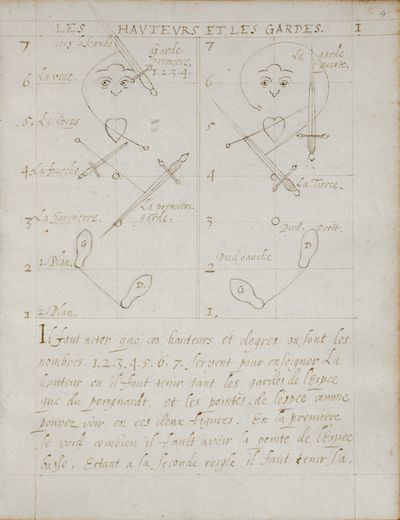 LES HAVTEVRS ET LES GARDES. I
4
7
Garde
premiere,
1.2.3.4.
6 La veue.
5. Le Corps
4 La fourche
La premiere
garde.
3 La Jaretierre.
G
2 1. Plan.
D.
1 2. Plan.
7
La garde
quarte.
6
5
4
La Tierce.
3
Pied. Droit.
D
Pied gauche
2
G
1.
Il faut noter que ces hauteurs et degres ou sont les
nombres. 1.2.3.4.5.6.7. servent pour enseigner La
hauteur ou il faut tenir tant les gardes de l'Espee
que du poingnardt, et les pointes de l'espee comme
pouvez voir en ces deux figures. En la premiere
se void combien il fault avoir la pointe de l'Espee
basse, Estant a la seconde reigle il faut tenir sa